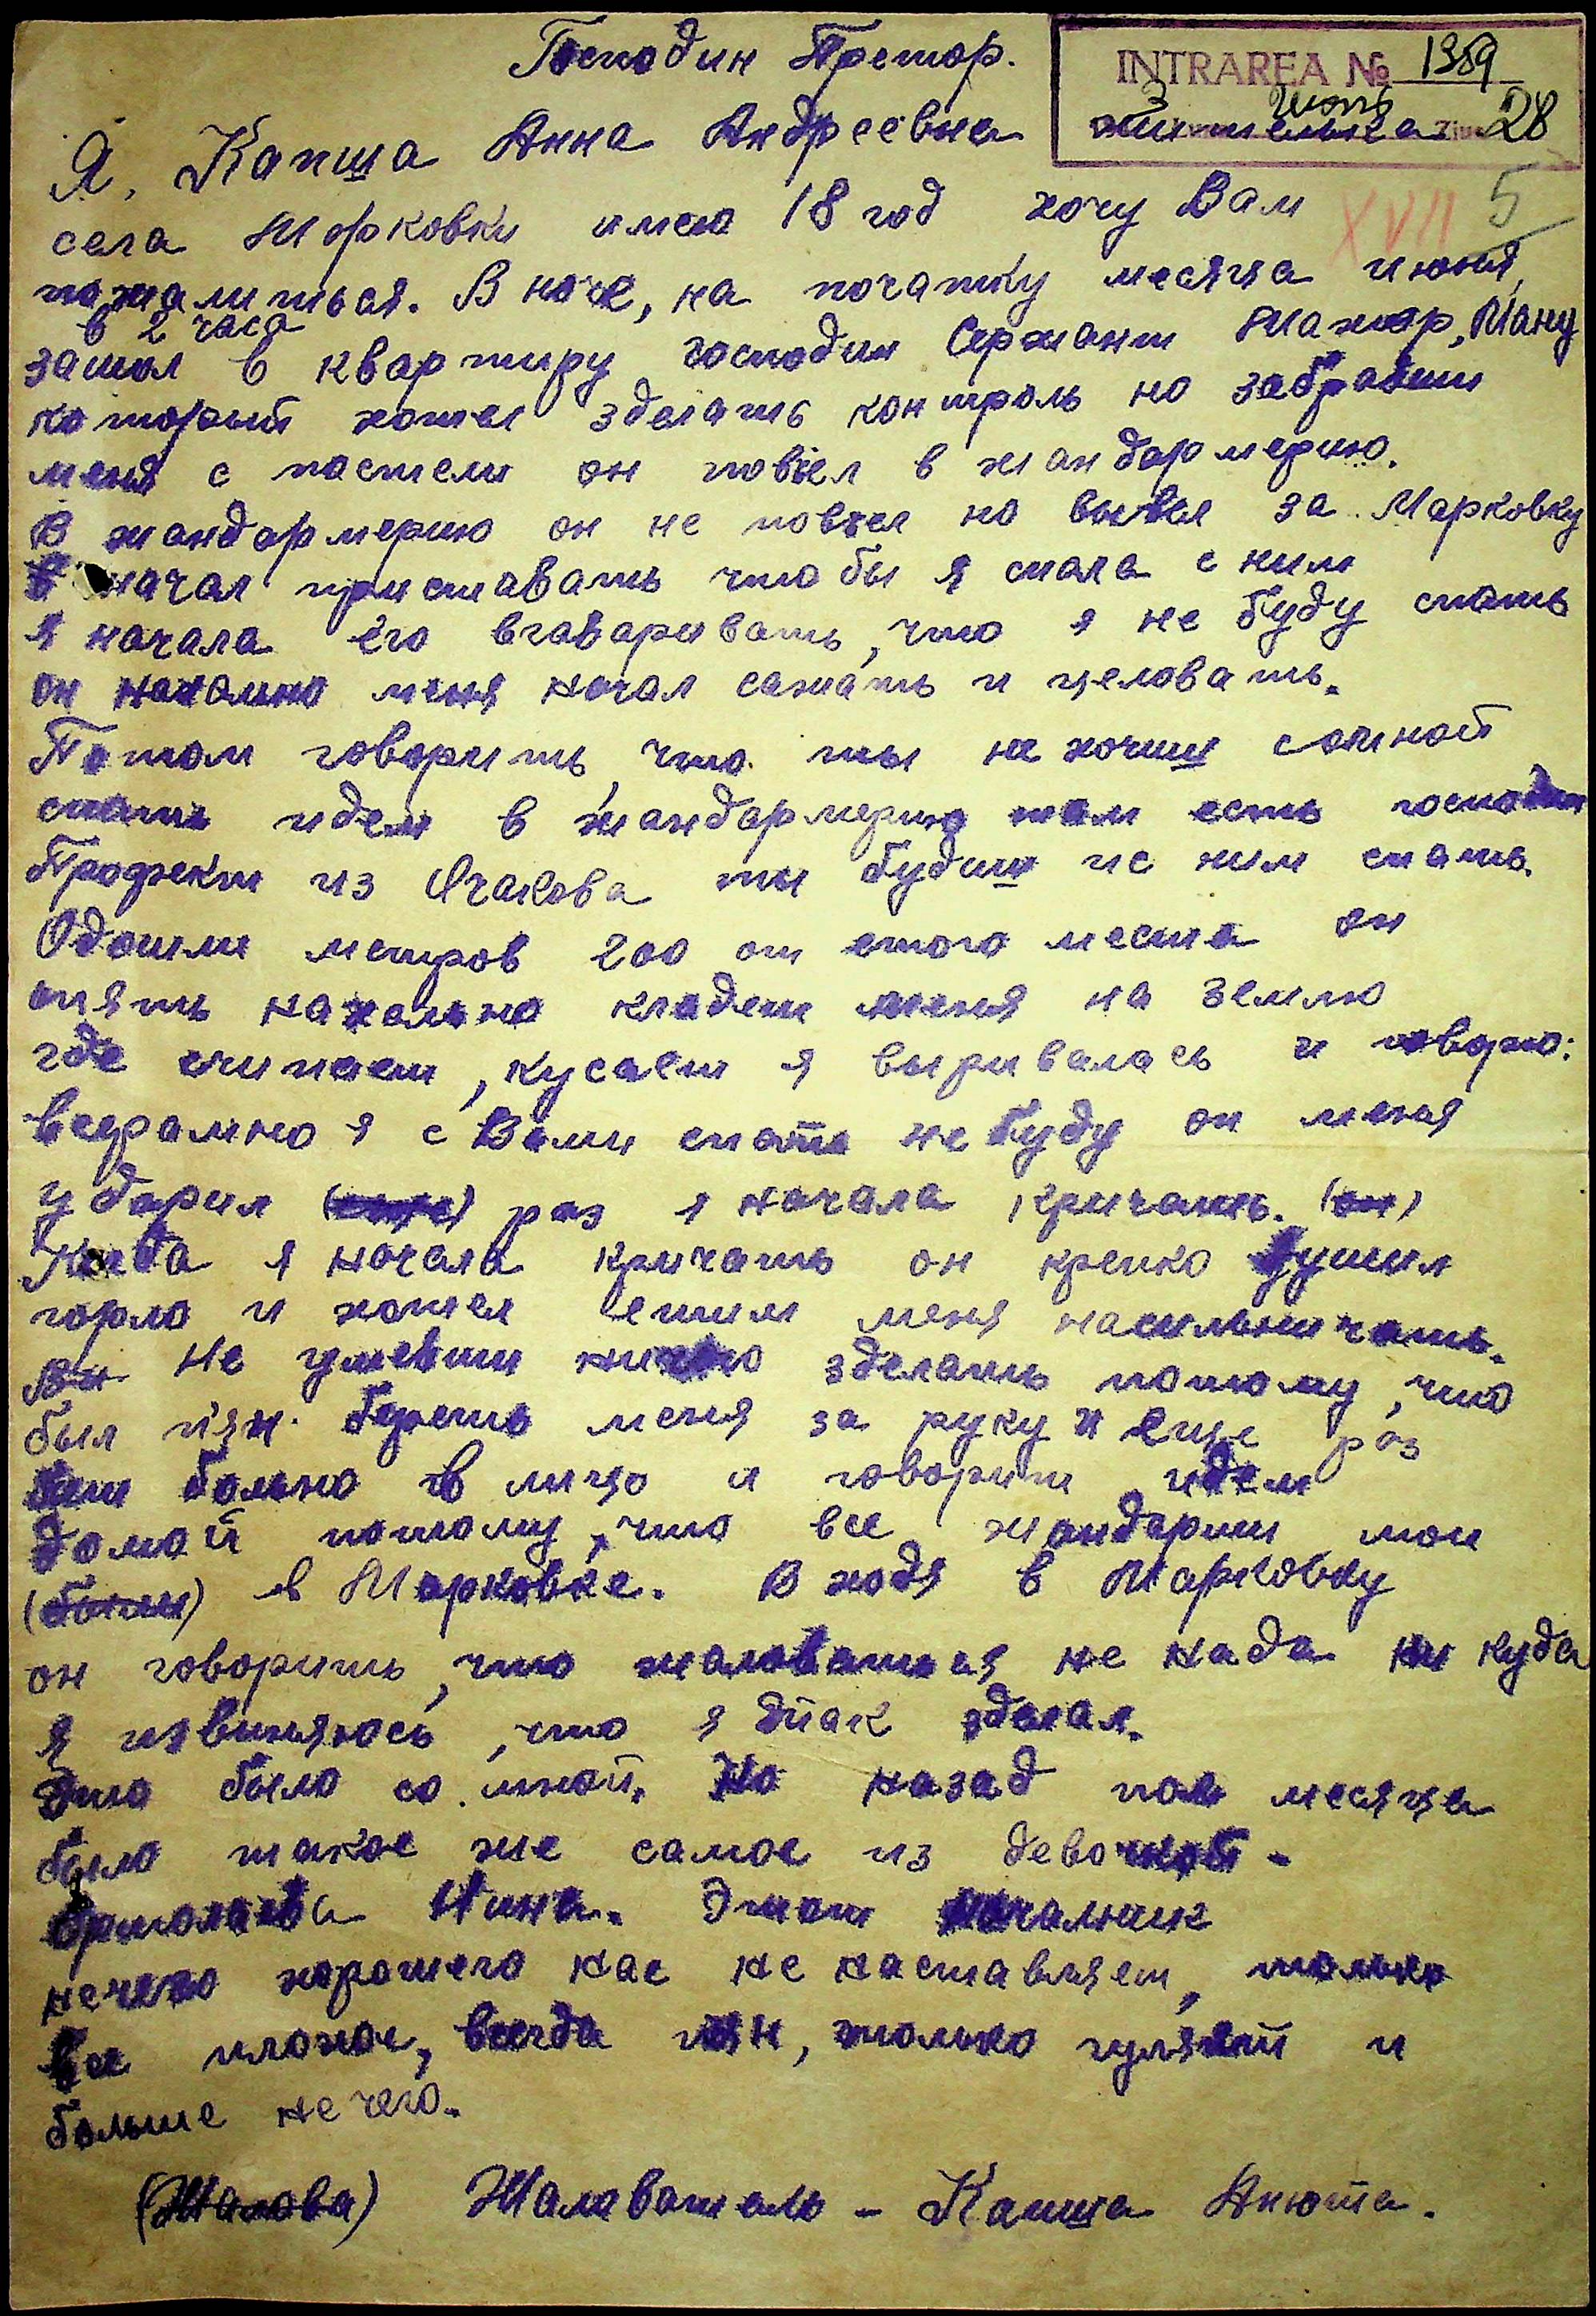 Господин Претор.
INTRAREA № 1359
3 Июнь 28
Я, Капша Анна Андреевна жительница
XVII 5
села Марковки имею 18 год хочу Вам
пожалиться. В ноче, на початку месяца июня,
в 2 часа
зашол в квартиру господин Сержант Мажор, Ману
который хотел зделать контроль но забравши
меня с постели он повёл в жандармерию.
В жандармерию он не повел но вывел за Марковку
и начал приставать что бы я спала с ним
я начала его вгаваривать, что я не буду спать
он нахально меня начал сажать и целовать.
Потом говорить, что ты не хочиш сомной
спать идем в жандармерию там есть господин
Профект из Очакова ты будиш ис ним спать.
Одошли метров 200 от етого места он
опять нахально кладет меня на землю
где счипает, кусает я выривалась и говорю:
всеравно я с Вами спать не буду он меня
ударил (еще) раз я начала кричать. (он)
Когда я начала кричать он крепко душил
горло и хотел етим меня насильничать.
Он Не умевши ничего зделать потому, что
был пян. береть меня за руку и еще раз
бет больно в лицо и говорит идем
домой потому, что все жандарми мои
в Марковке. В ходя в Марковку
он говорить, что жаловаться не нада ни куда
я извиняюсь, что я так зделал.
Это было со мной. Но назад пол месяца
было такое же самое из девочкой -
Нина. Этот началник
нечего хорошего нас не наставляет, только
все плохое, всегда пян, только гуляет и
больше нечего.
(Жалова) Жалаватель - Капша Анюта.